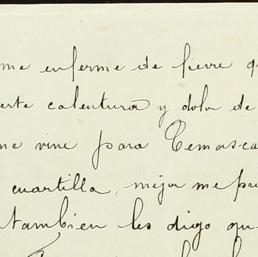 me enferme de fievre
erte calentura y dolor de
me vine para Temasca
cuartilla, mejor me
tambien les digo qu